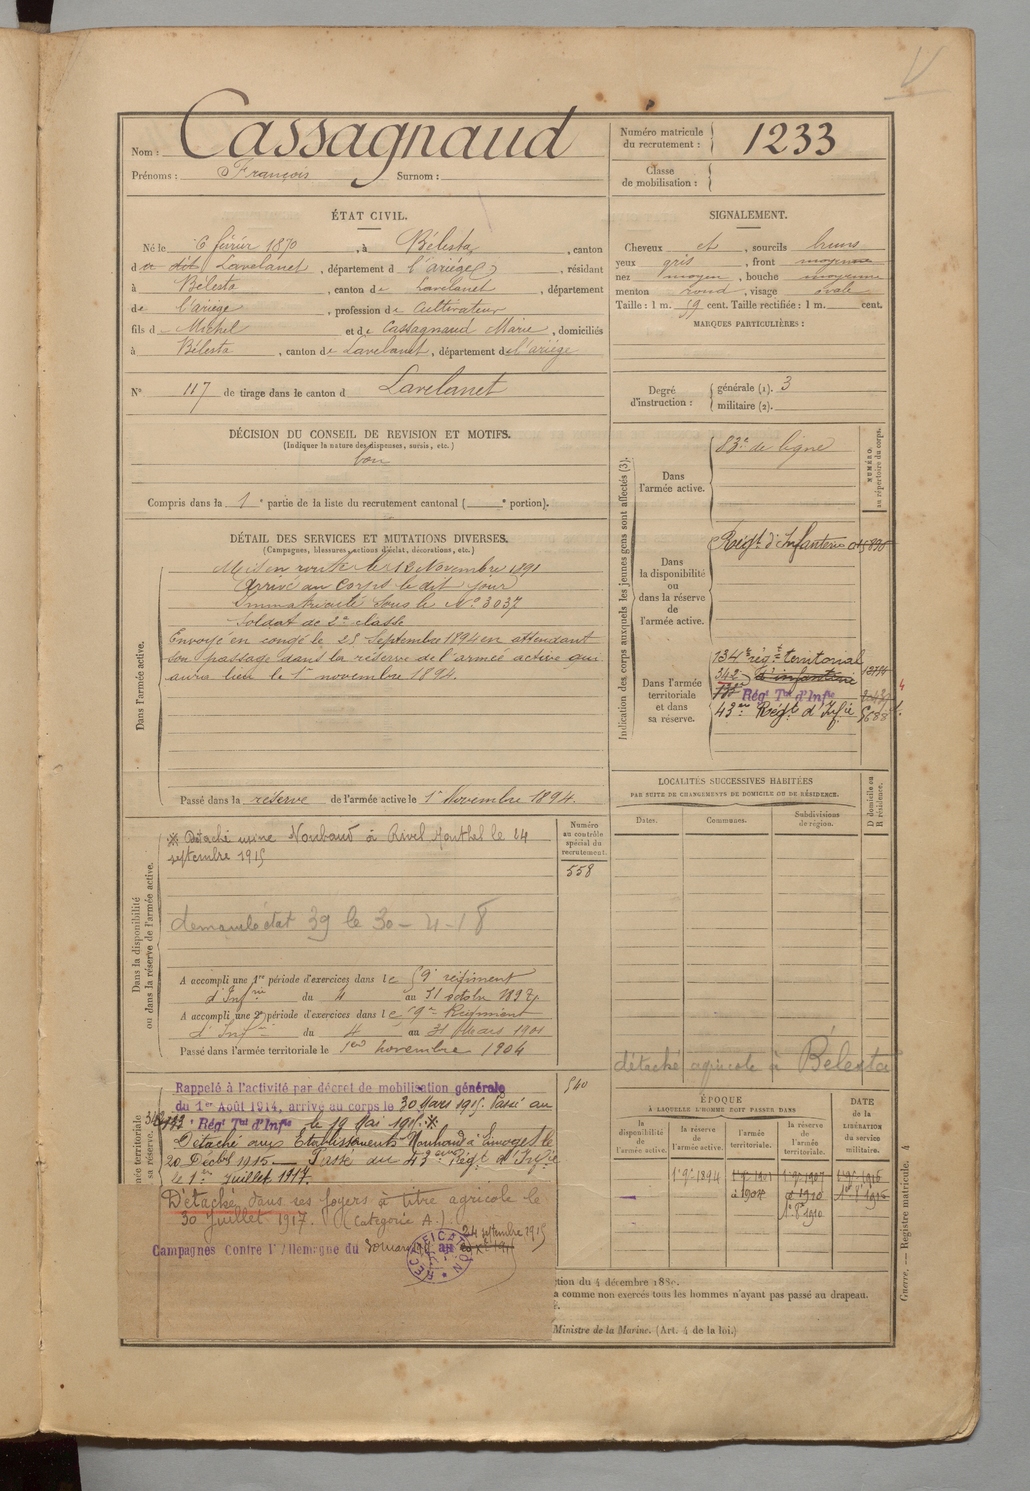 Nom : Cassagnaud
Prénoms : François Surnom :
Numéro matricule du recrutement : 1233
Classe de mobilisation :
ÉTAT CIVIL.
Né le 6 février 1870, à Bélesta, canton
d dit Lavelanet, département d l'ariège, résidant
à Bélesta, canton de Lavelanet, département
de l'ariège, profession de Cultivateur
fils d Michel et de Cassagnaud Marie, domiciliés
à Bélesta, canton de Lavelanet, département de l'ariège
N° 117 de tirage dans le canton d Lavelanet
DÉCISION DU CONSEIL DE REVISION ET MOTIFS.
(Indiquer la nature des dispenses, sursis, etc.)
bon
Compris dans la 1e partie de la liste du recrutement cantonal ( e portion).
SIGNALEMENT.
Cheveux et, sourcils bruns
yeux gris, front moyenne
nez moyen, bouche moyenne
menton rond, visage ovale
Taille : 1 m. 59 cent. Taille rectifiée : 1 m. cent.
MARQUES PARTICULIÈRES :
Degré d'instruction : générale (1). 3
militaire (2).
DÉTAIL DES SERVICES ET MUTATIONS DIVERSES.
(Campagnes, blessures, actions d'éclat, décorations, etc.)
Dans l'armée active.
Mis en route le 12 Novembre 1891
Arrivé au corps le dit jour
Immatriculé sous le N° 3037
Soldat de 2e classe
Envoyé en congé le 25 Septembre 1894 en attendant
son passage dans la réserve de l'armée active qui
aura lieu le 1er novembre 1894.
Passé dans la réserve de l'armée active le 1er Novembre 1894.
Indication des corps auxquels les jeunes gens sont affectés (3).
NUMÉRO au répertoire du corps.
Dans l'armée active.
83e de ligne
Dans la disponibilité ou dans la réserve de l'armée active.
Régt d'Infanterie
Dans l'armée territoriale et dans sa réserve.
134e régt territorial
342 d'infanterie
Régt Tal d'Infie
43em Régt d'Infie
LOCALITÉS SUCCESSIVES HABITÉES
PAR SUITE DE CHANGEMENTS DE DOMICILE OU DE RÉSIDENCE.
Dates.
Communes.
Subdivisions de région.
D domicile ou R résidence.
détaché agricole à Bélesta
Dans la disponibilité ou dans la réserve de l'armée active.
Numéro au contrôle spécial du recrutement.
558
Détaché usine à Rivel le 24
septembre 1915
demande état 39 le 30-4-18
A accompli une 1re période d'exercices dans le 59e régiment
d'Infrie du 4 au 31 octobre 1897
A accompli une 2e période d'exercices dans le 59e Régiment
d'Infie du 4 au 31 Mars 1901
Passé dans l'armée territoriale le 1er novembre 1904
540
Rappelé à l'activité par décret de mobilisation générale
du 1er Août 1914, arrivé au corps le 30 Mars 1915. Passé au
Régt Tal d'Infie le 19 Mai 1915.
Détaché aux Etablissements le
20 Décbre 1915 — Passé au 43eme Régt d'Infie
le 1er Juillet 1917.
Détaché dans ses foyers à titre agricole le
30 Juillet 1917. (Catégorie A.).
24 septembre 1915
Campagnes Contre l'Allemagne du 30 mars 1915 au
RECTIFICATION
ÉPOQUE
À LAQUELLE L'HOMME DOIT PASSER DANS
la disponibilité de l'armée active.
la réserve de l'armée active.
l'armée territoriale.
la réserve de l'armée territoriale.
DATE de la LIBÉRATION du service militaire.
1894
1904
1910
1916
tion du 4 décembre 1889.
a comme non exercés tous les hommes n'ayant pas passé au drapeau.
Ministre de la Marine. (Art. 4 de la loi.)
Guerre. — Registre matricule. 4